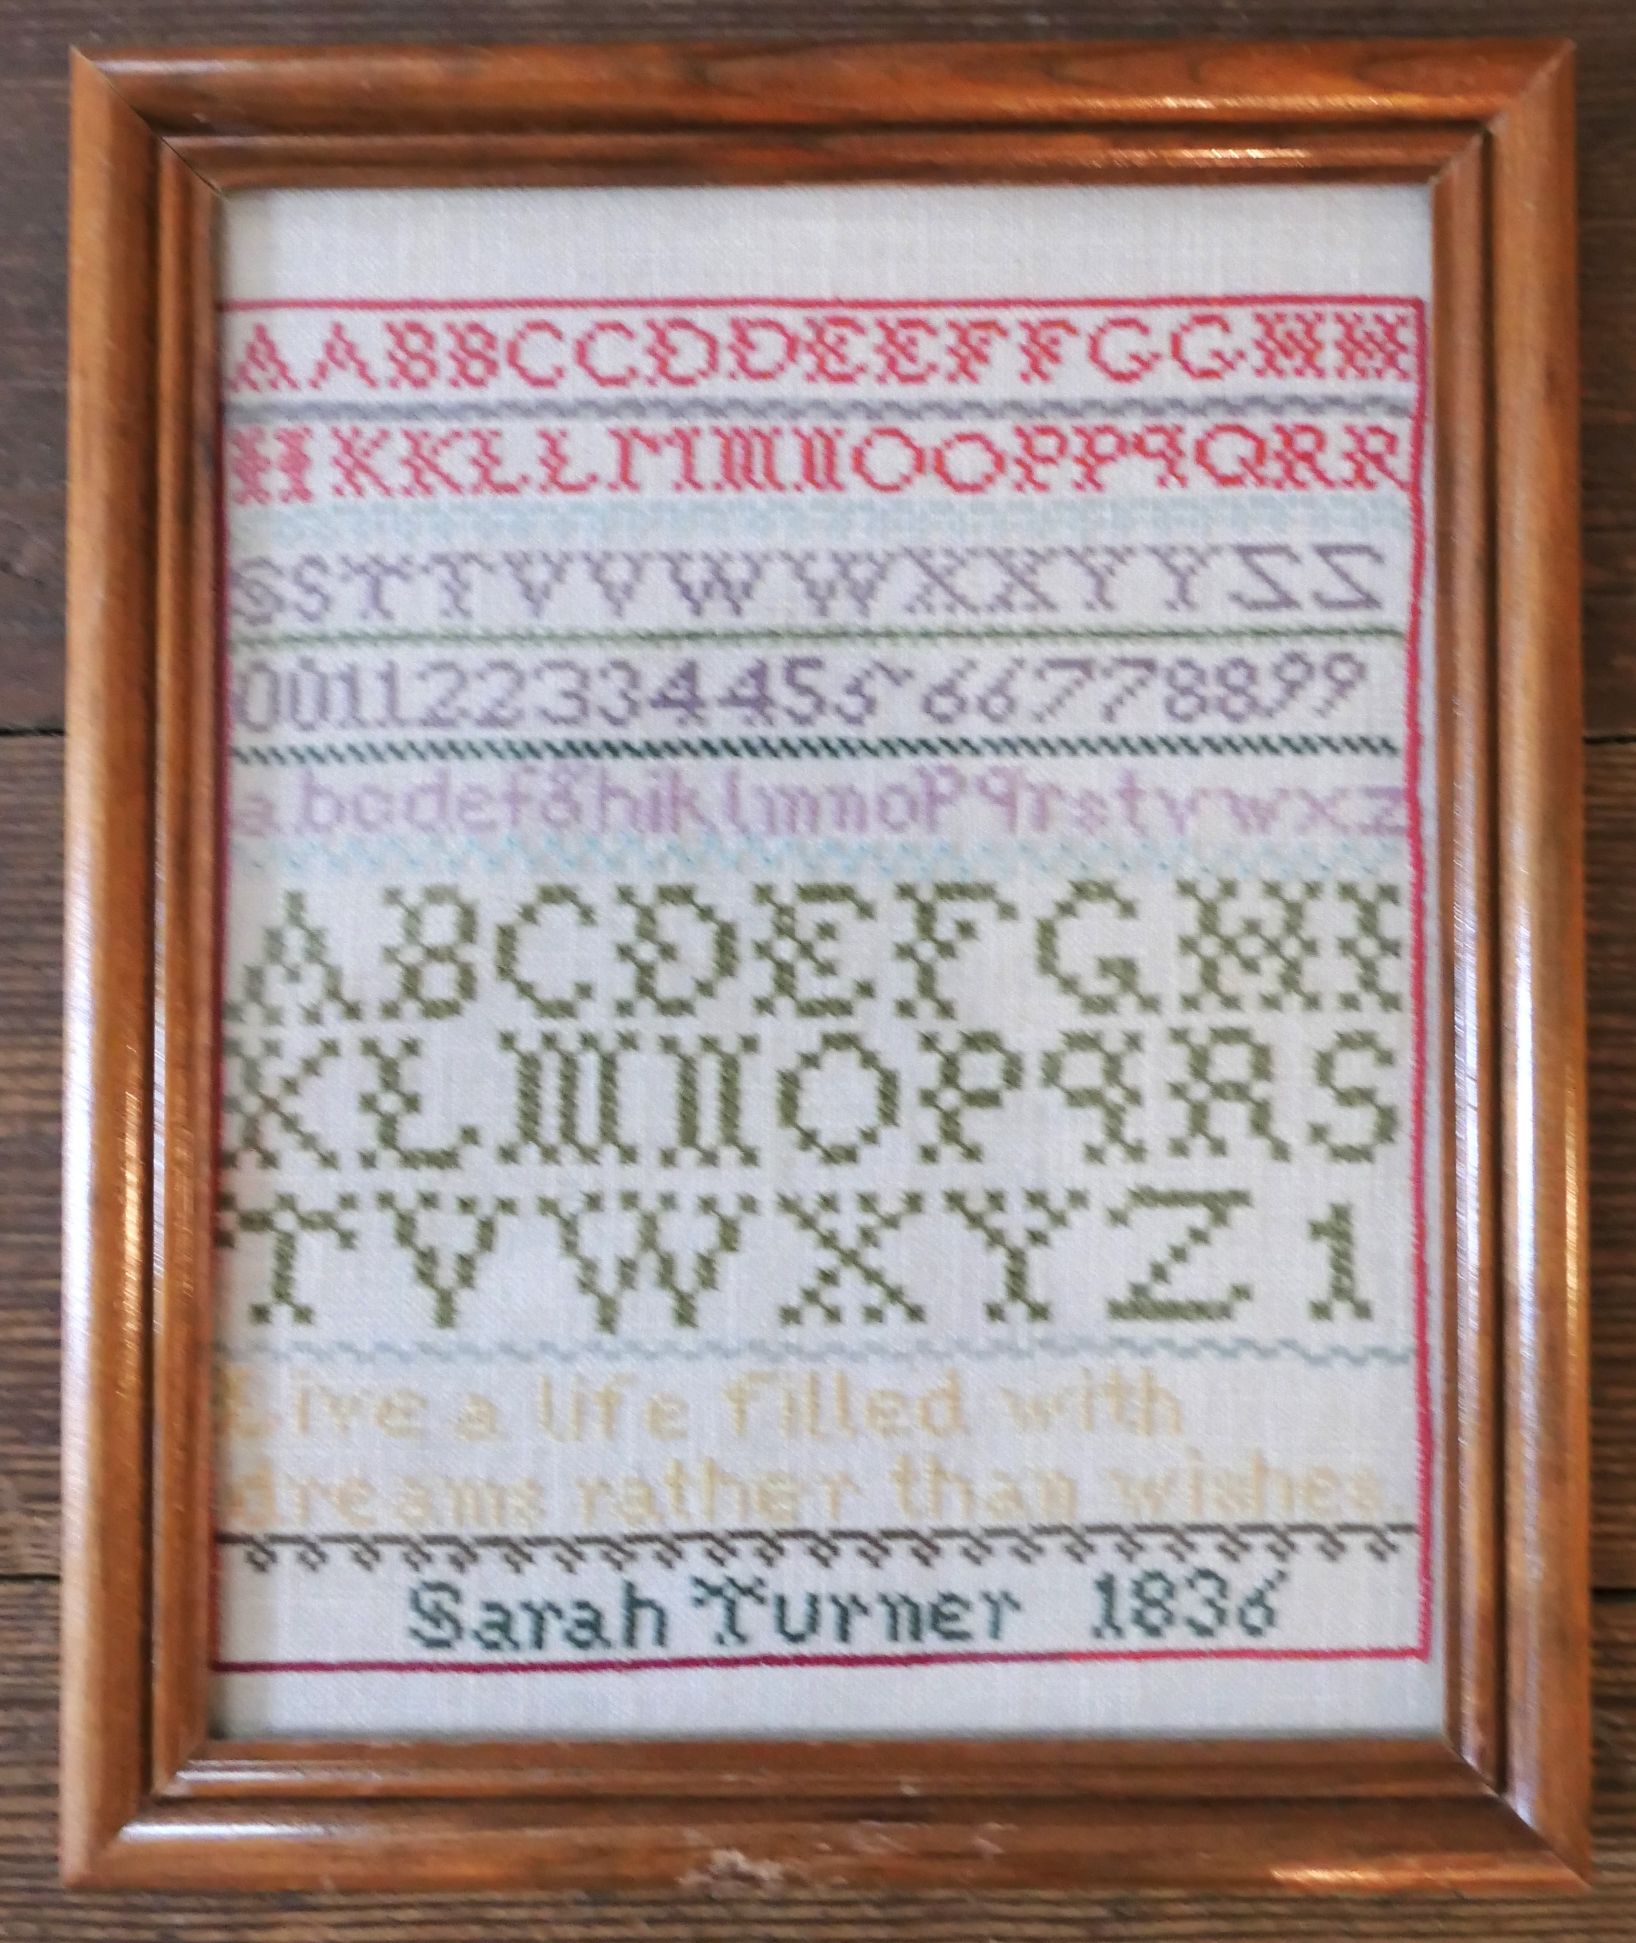 AABBCCDDEEFFGGHH
IIKKLLMMNOOPPqQRR
SSTTVVWWXXYYZZ
00112233445566778899
abcdefghiklmnopqrstvwxz
ABCDEFGHI
KLMNOPqRS
TVWXYZ1
Live a life filled with
dreams rather than wishes.
Sarah Turner 1836